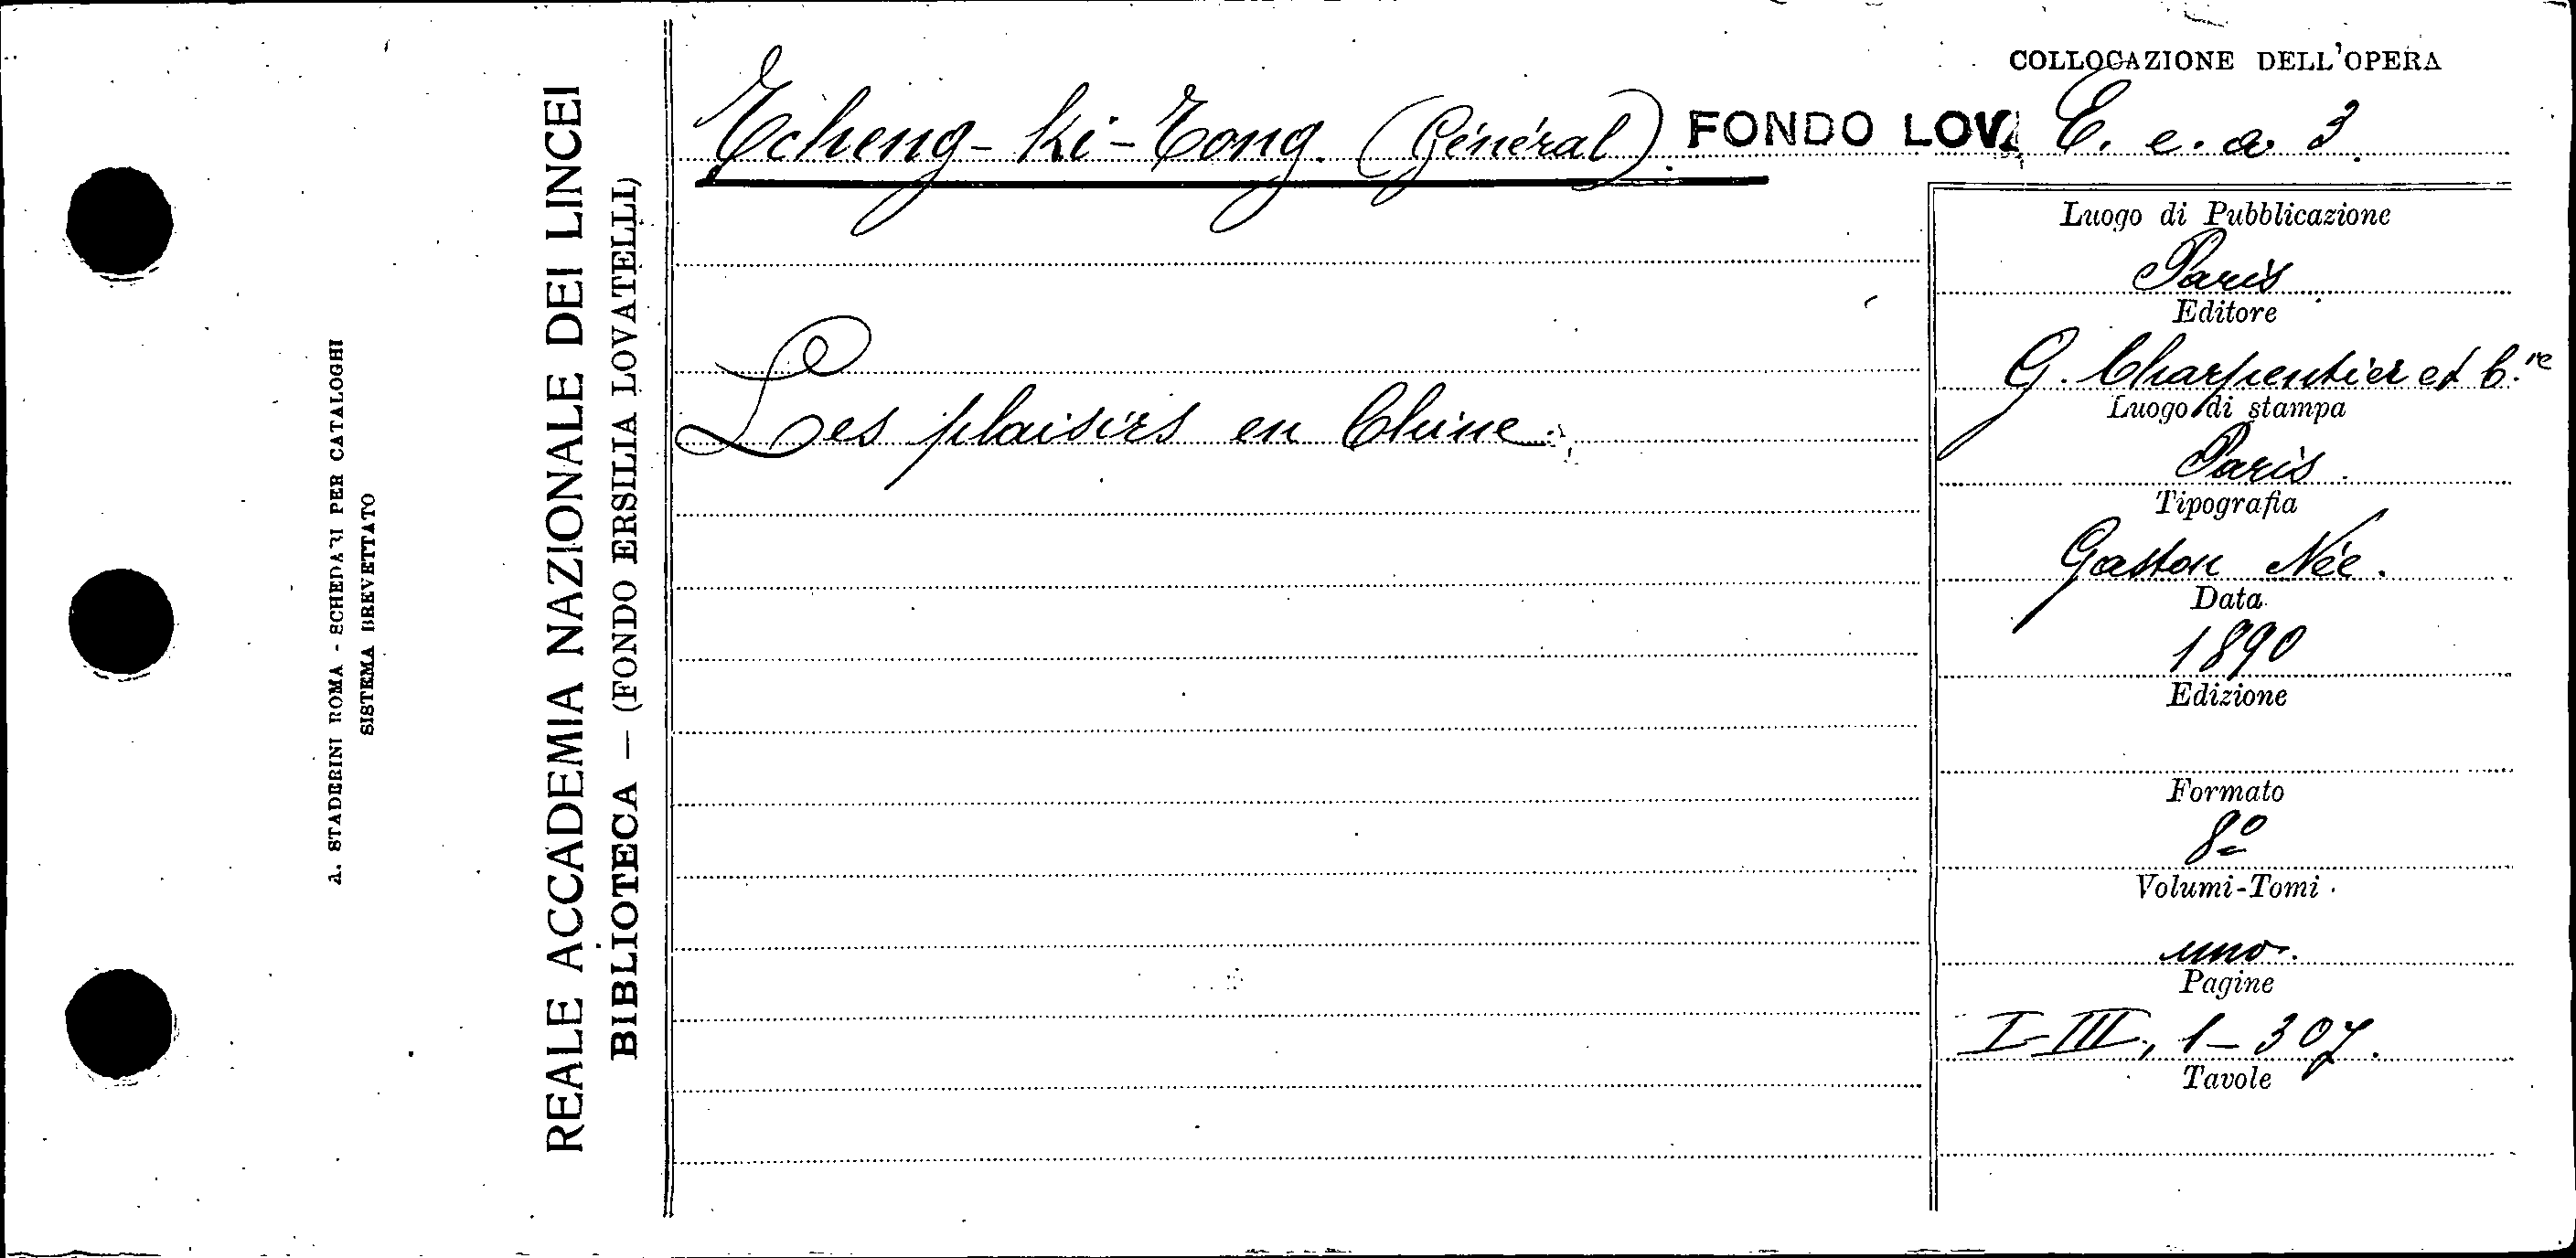 A. STADERINI ROMA - SCHEDARI PER CATALOGHI
SISTEMA BREVETTATO
REALE ACCADEMIA NAZIONALE DEI LINCEI
BIBLIOTECA — (FONDO ERSILIA LOVATELLI)
Tcheng-Ki-Tong. (Général).
Les plaisirs en Chine.
FONDO LOVA
COLLOCAZIONE DELL'OPERA
E. e. a. 3.
Luogo di Pubblicazione
Paris
Editore
G. Charpentier et C.ie
Luogo di stampa
Paris
Tipografia
Gaston Née.
Data
1890
Edizione
Formato
8º
Volumi-Tomi
uno.
Pagine
I-III, 1-307.
Tavole